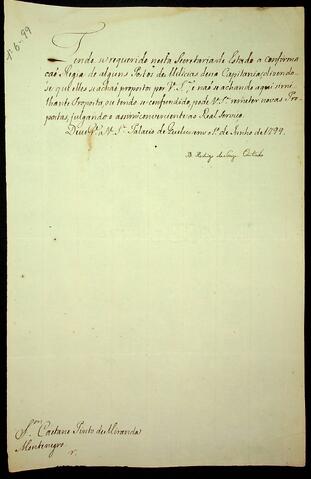 1-6-99
Tendo se requerido nesta Secretaria de Estado a confirma
caõ Regia de alguns Postos de Milicias dessa Capitania, dizendo-
se que elles se achaõ propostos por V. S.ª, e naõ se achando aqui seme
lhante Proposta, ou tendo se confundido, pode V. S.ª remeter novas Pro
postas, julgando o assim conveniente ao Real Serviço.
Deus G.e a V. S.ª Palacio de Queluz em o 1.º de Junho de 1799.
D. Rodrigo de Souza Coutinho
S.or Caetano Pinto de Miranda
Montenegro.